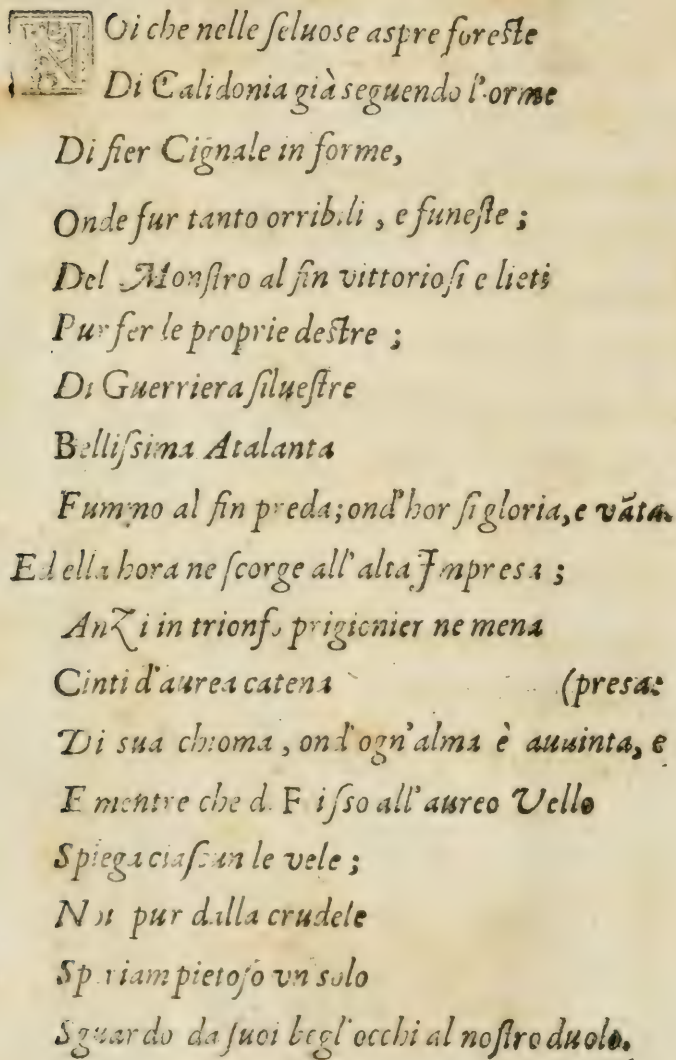 NOi che nelle ſeluose aspre foreſte
Di Calidonia già seguendo l'orme
Di fier Cignale in forme,
Onde fur tanto orribili, e funeſte;
Del Monſtro al fin vittorioſi e lieti
Pur fer le proprie deſtre;
Di Guerriera ſilueſtre
Belliſsima Atalanta
Fummo al fin preda; ond'hor ſi gloria, e vāta.
Ed ella hora ne ſcorge all'alta Impresa;
Anzi in trionfo prigionier ne mena
Cinti d'aurea catena
(presa:
Di sua chioma, ond'ogn'alma è auuinta, e
E mentre che di Friſso all'aureo Vello
Spiega ciaſcun le vele;
Noi pur dalla crudele
Speriam pietoſo vn solo
Sguardo da ſuoi begl'occhi al noſtro duolo.